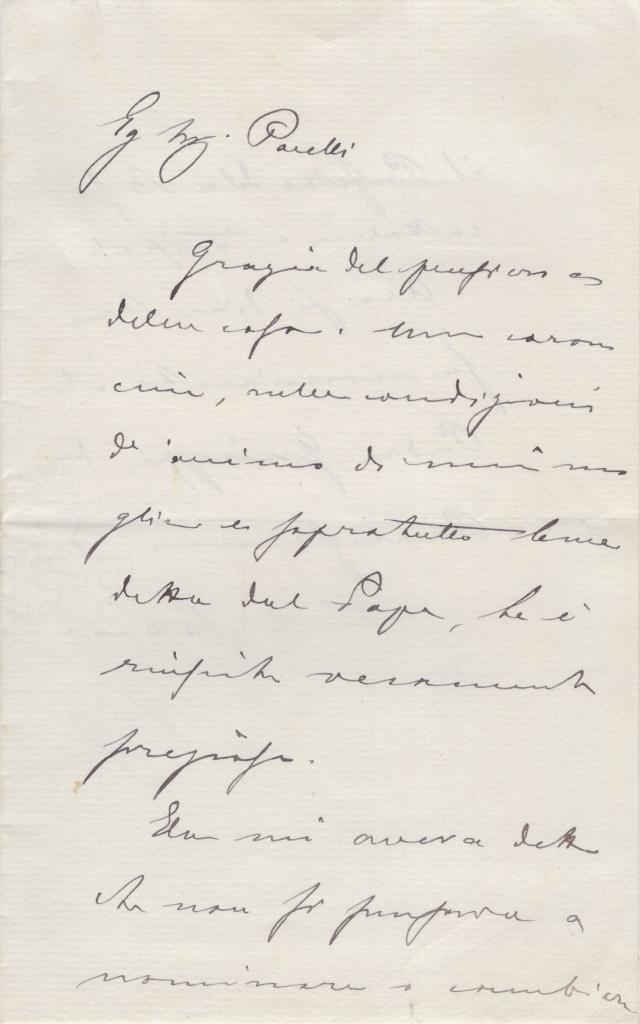 Eg Sig. Parelli
Grazie del pensiero e
della cosa. Una corona
cui, nelle condizioni
di animo di mia mo
glie e sopratutto bene
detta dal Papa, le è
riuscita veramente
preziosa.
Ella mi aveva detto
che non si pensava a
nominare o cambiare